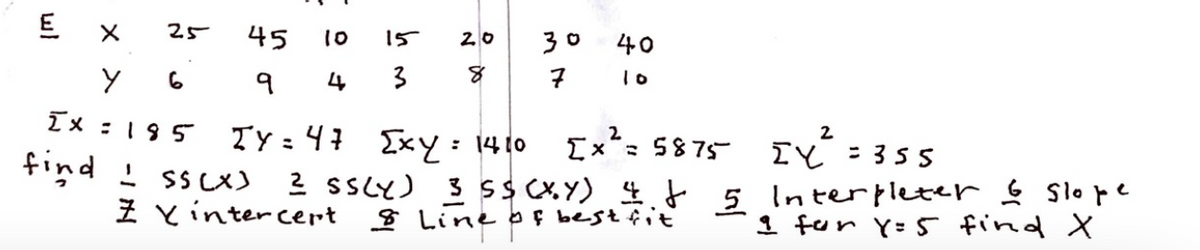 E X 25 45 10 15 20 30 40
Y 6 9 4 3 8 7 10
Σx = 185 ΣY = 47 Σxy = 1410 Σx² = 5875 ΣY² = 355
find 1 SS(X) 2 SS(Y) 3 SS(X,Y) 4 r 5 Interpleter 6 Slope
7 Y intercert 8 Line of best fit 9 for Y=5 find X